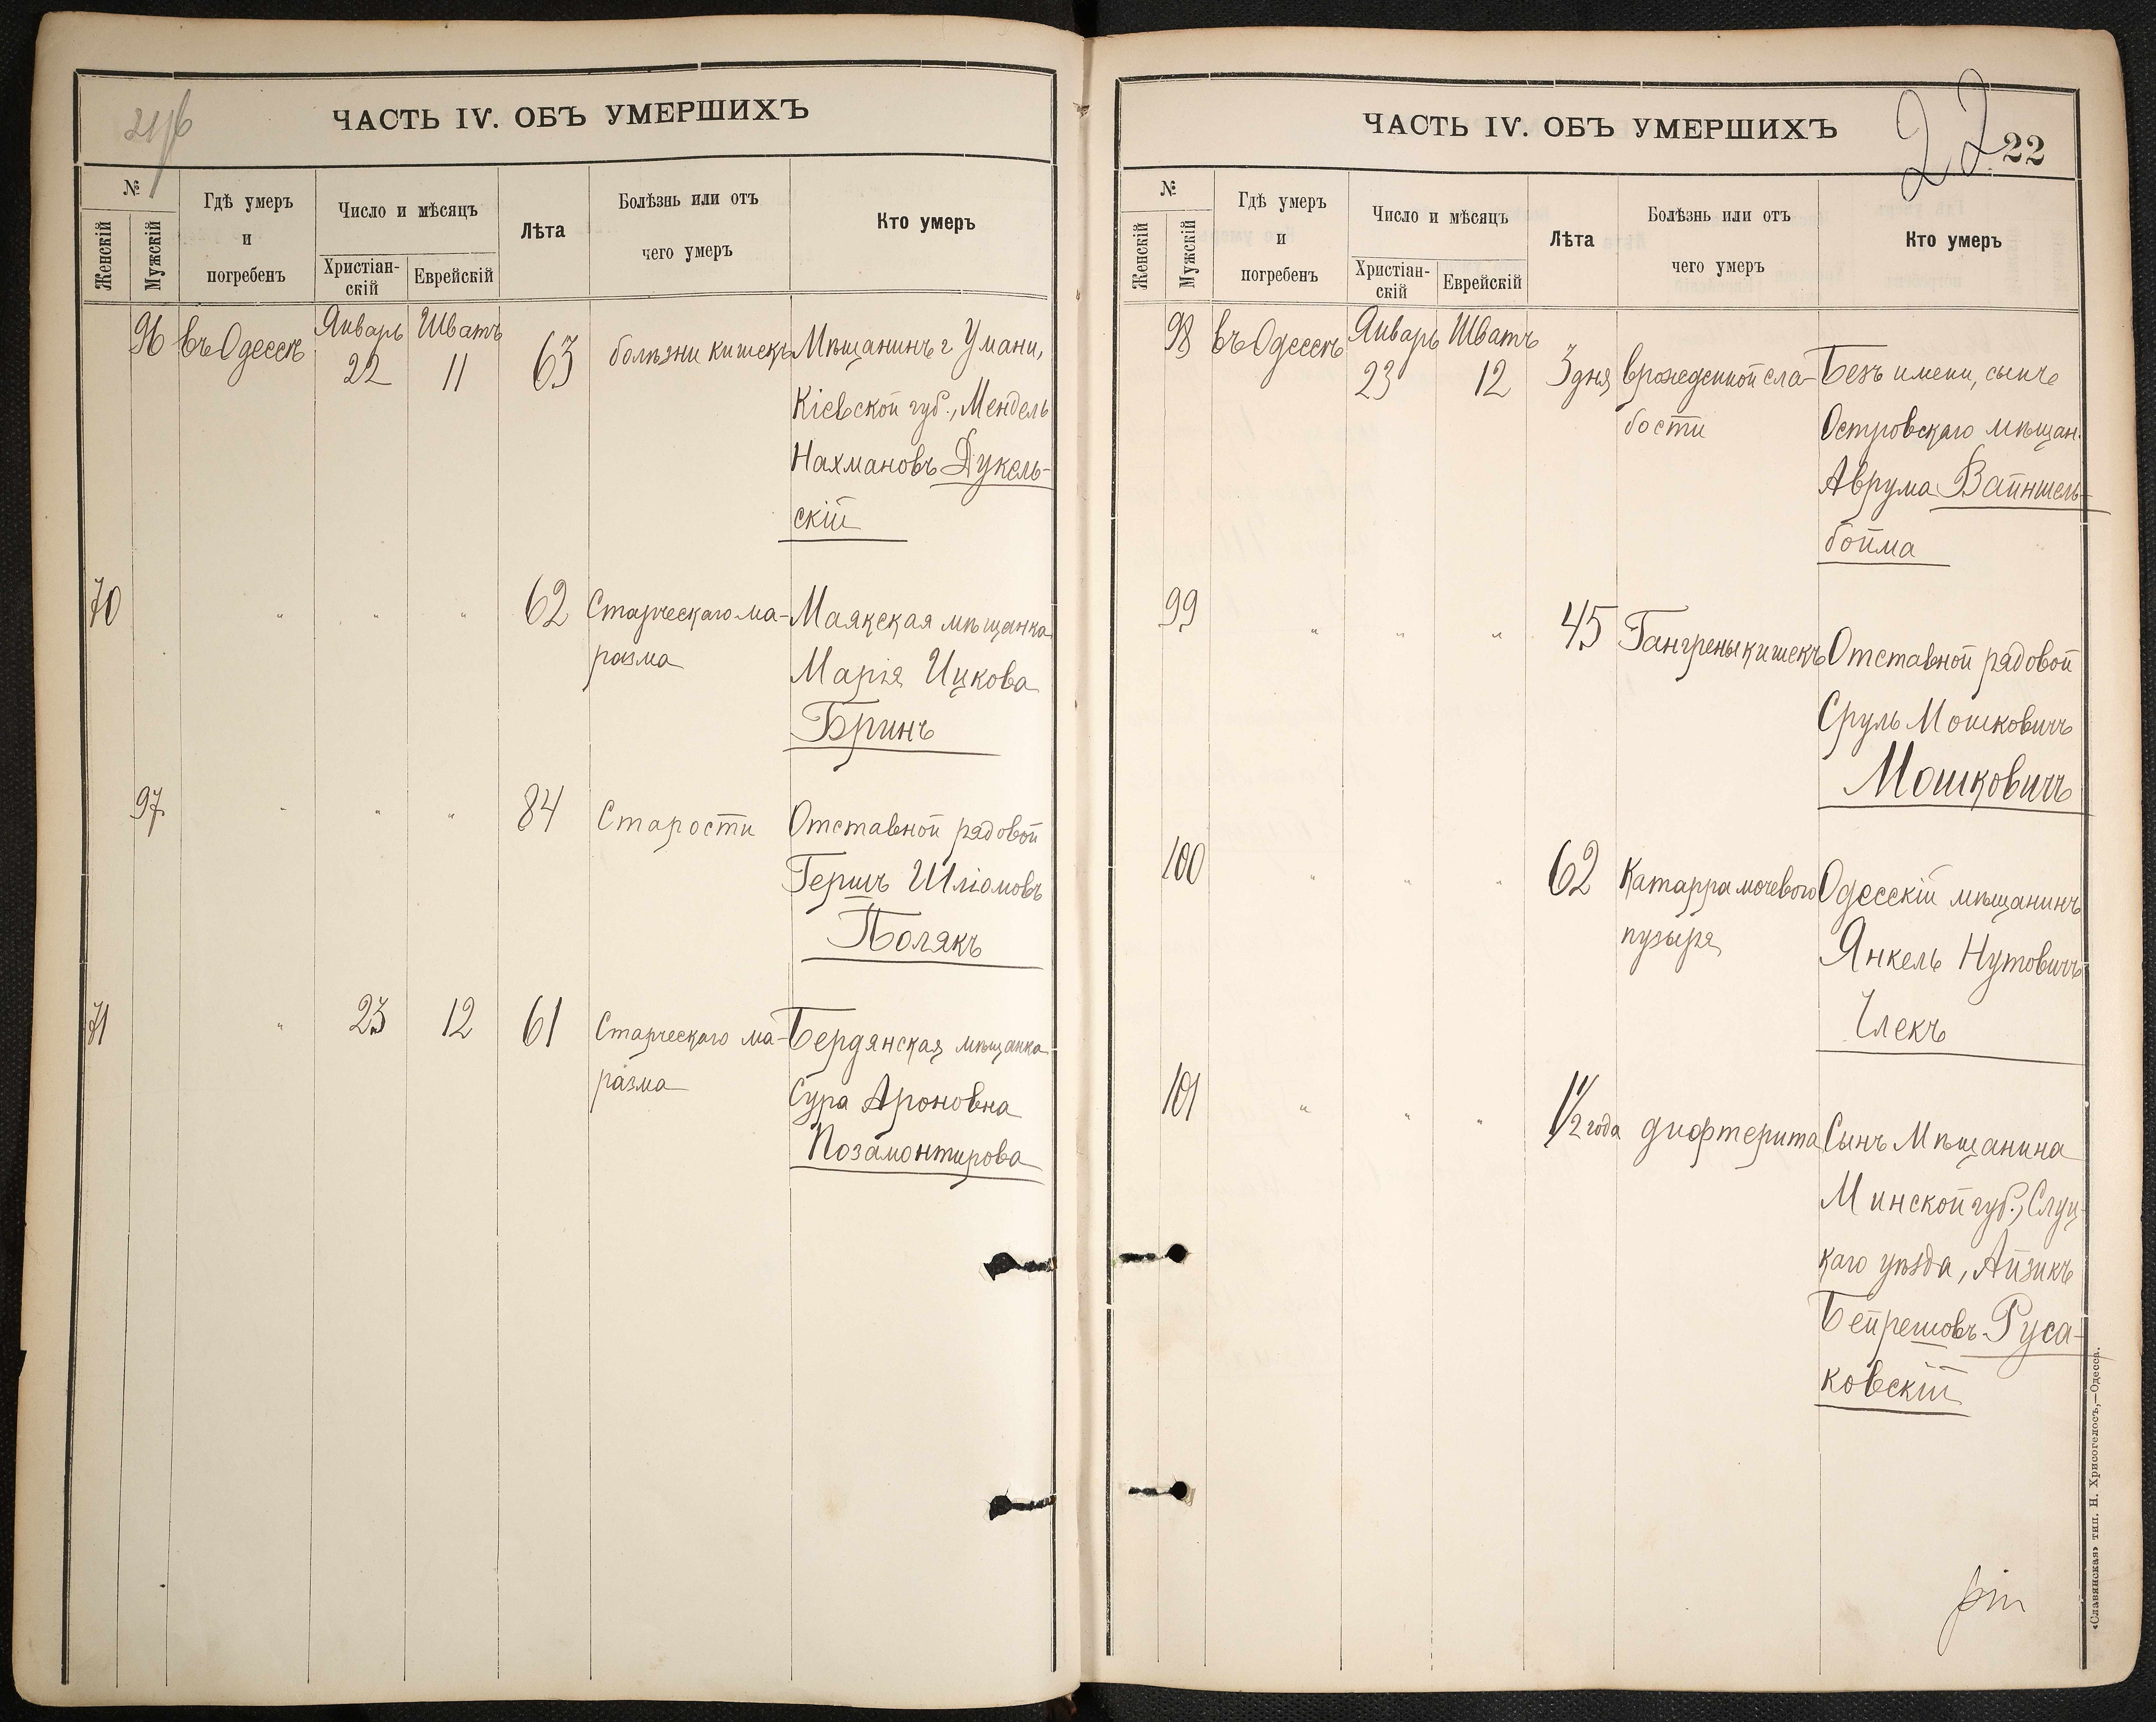 ЧАСТЬ IV. ОБЪ УМЕРШИХЪ
№
Женскій
Мужскій
Гдѣ умеръ
и
погребенъ
Число и мѣсяцъ
Христіан-
скій
Еврейскій
Лѣта
Болѣзнь или отъ
чего умеръ
Кто умеръ
96 въ Одессѣ Январь 22 Шватъ 11 63 болѣзни кишекъ Мѣщанинъ г Умани,
Кіевской губ., Мендель
Нахмановъ Дукель-
скій
70 " " " 62 Старческаго ма- Маякская мѣщанка
разма Марія Ицкова
Бринъ
97 " " " 84 Старости Отставной рядовой
Гершъ Шліомовъ
Полякъ
71 " 23 12 61 Старческаго ма- Бердянская мѣщанка
разма Сура Ароновна
Позамонтирова
ЧАСТЬ IV. ОБЪ УМЕРШИХЪ
22 22
№
Женскій
Мужскій
Гдѣ умеръ
и
погребенъ
Число и мѣсяцъ
Христіан-
скій
Еврейскій
Лѣта
Болѣзнь или отъ
чего умеръ
Кто умеръ
98 въ Одессѣ Январь 23 Шватъ 12 3 дня врожденной сла- Безъ имени, сынъ
бости Островскаго мѣщан.
Аврума Вайншель-
бойма
99 " " " 45 Гангрены кишекъ Отставной рядовой
Сруль Мошковичъ
Мошковичъ
100 " " " 62 Катарра мочевого Одесскій мѣщанинъ
пузыря Янкель Нутовичъ
Члекъ
101 " " " 1 1/2 года дифтерита Сынъ Мѣщанина
Минской губ., Слуц-
каго уѣзда, Айзикъ
Бейрешовъ Руса-
ковскій
«Славянская» тип. Н. Хрисогелосъ,—Одесса.